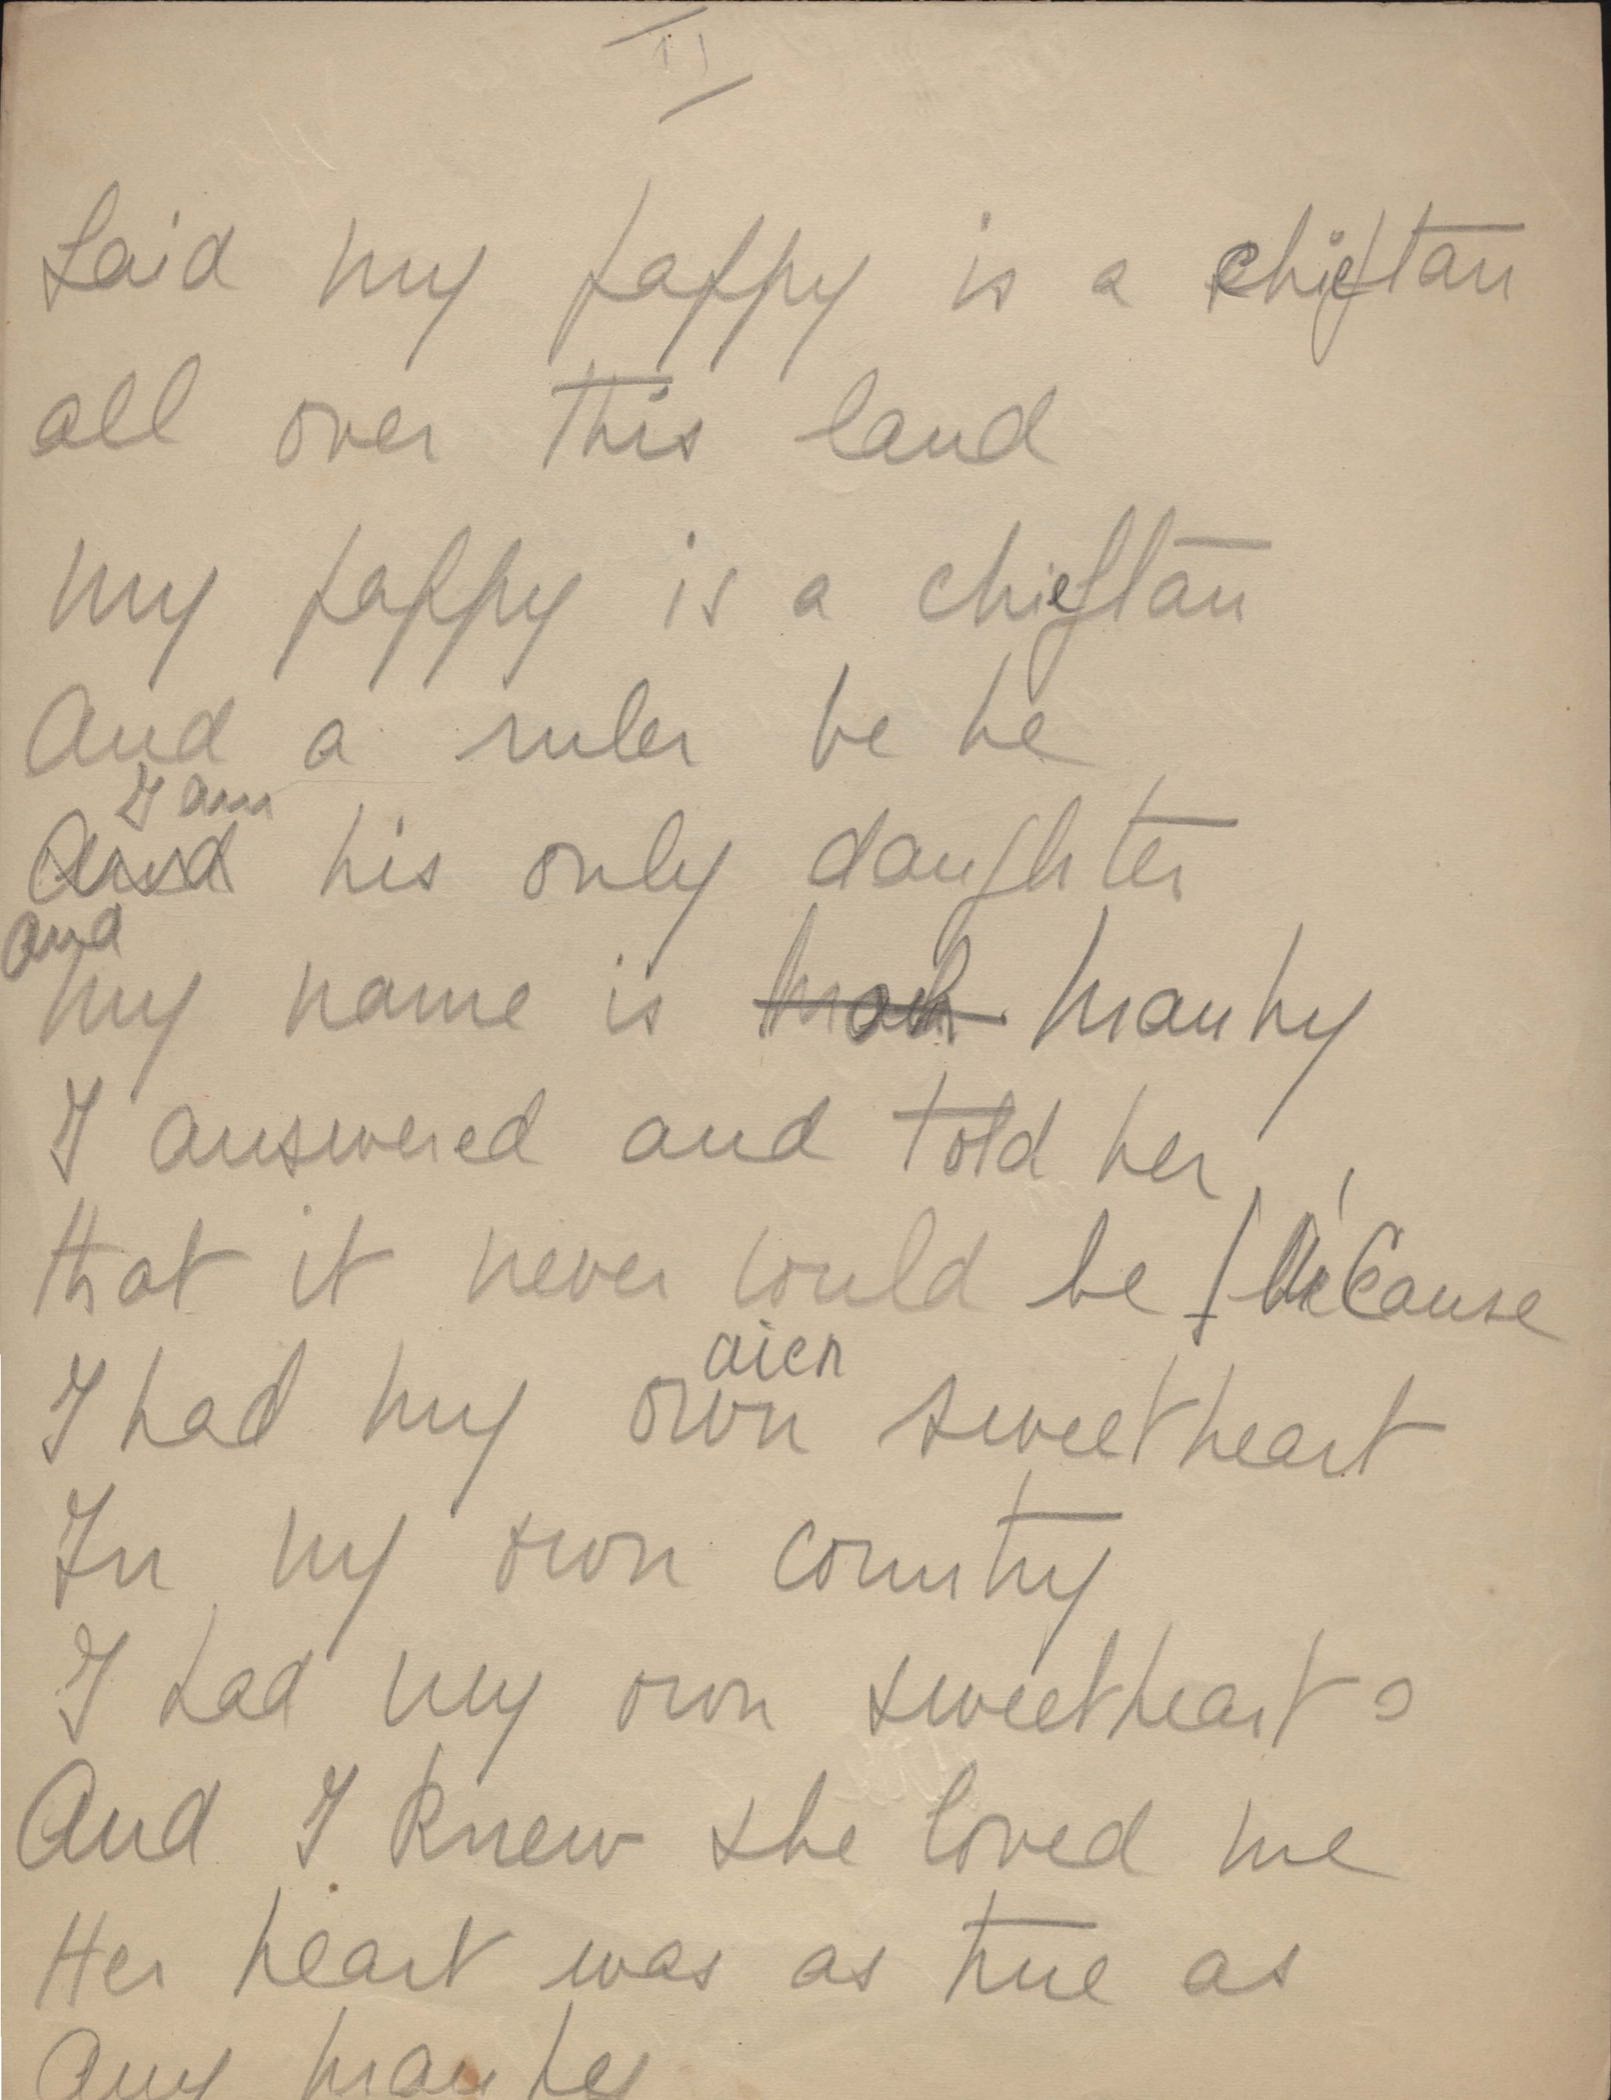 II
Said my pappy is a chieftan
all over this land
My pappy is a chieftan
And a ruler be he
I am
And his only daughter
And
My name is Mauhy
I answered and told her
that it never could be / Because
aien
I had my own sweetheart
In my own country
I had my own sweetheart
And I knew she loved me
Her heart was as true as
Any Mauhy